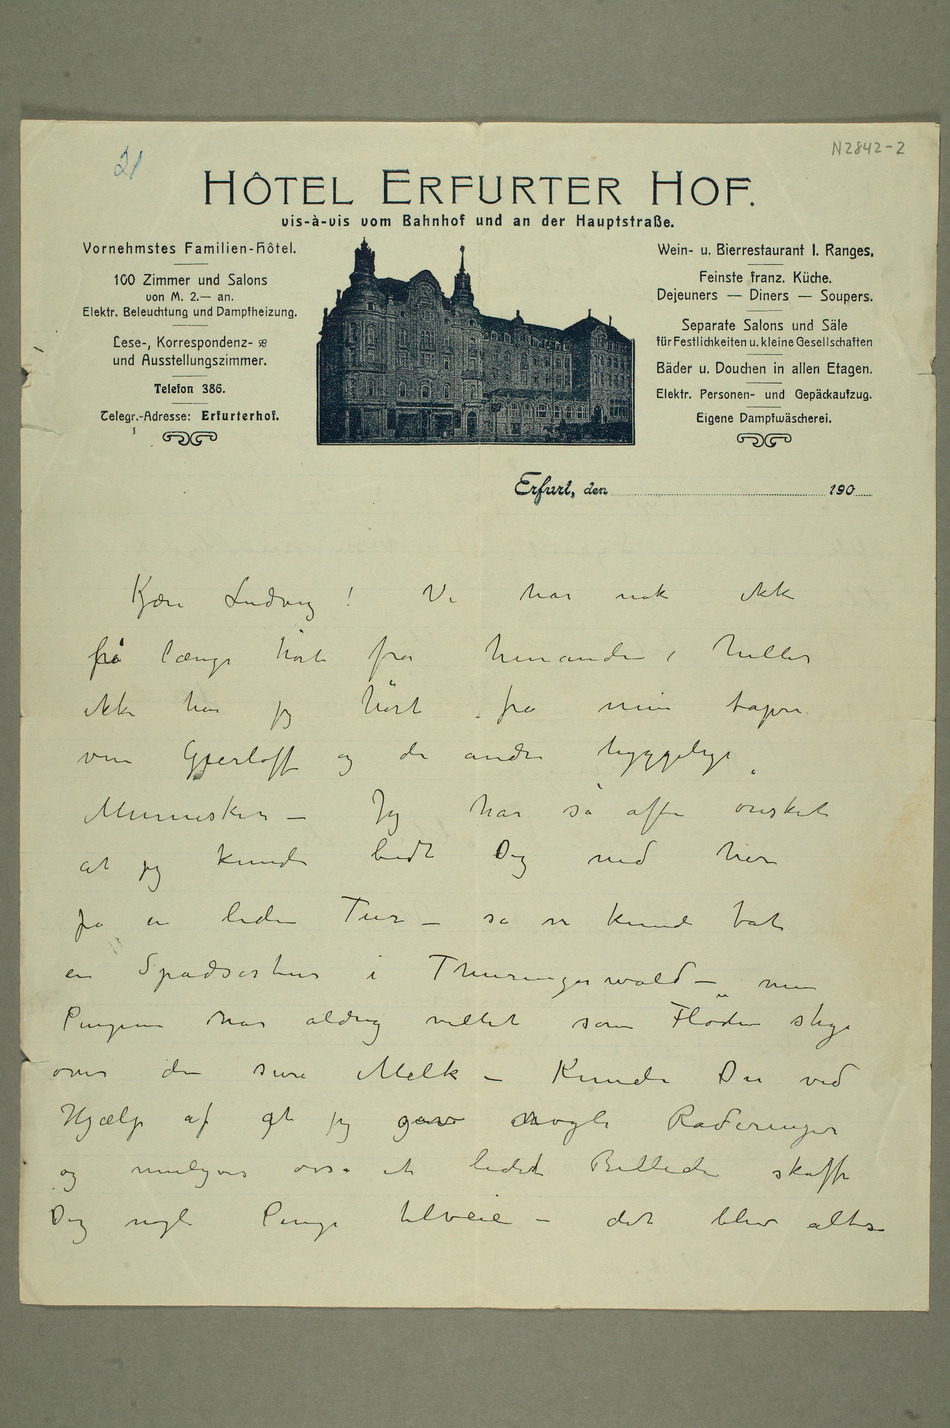 21
N2842-2
HÔTEL ERFURTER HOF.
vis-à-vis vom Bahnhof und an der Hauptstraße.
Vornehmstes Familien-Hôtel.
100 Zimmer und Salons
von M. 2.— an.
Elektr. Beleuchtung und Dampfheizung.
Lese-, Korrespondenz-
und Ausstellungszimmer.
Telefon 386.
Telegr.-Adresse: Erfurterhof.
Wein- u. Bierrestaurant I. Ranges.
Feinste franz. Küche.
Dejeuners — Diners — Soupers.
Separate Salons und Säle
für Festlichkeiten u. kleine Gesellschaften
Bäder u. Douchen in allen Etagen.
Elektr. Personen- und Gepäckaufzug.
Eigene Dampfwäscherei.
Erfurt, den 190
Kjære Ludvig! Vi har nok ikke
på længe hørt fra hinanden, heller
ikke har jeg hørt fra min tapre
ven Gierløff og de andre hyggelige
Mennesker – Jeg har så ofte ønsket
at jeg kunde bedt Dig ned her
på en liden Tur – så vi kunde tat
en Spadsertur i Thuringerwald – men
Pengene har aldrig villet som Fløden stige
over den sure Melk – Kunde Du ved
Hjælp af at jeg gav nogle Raderinger
og muligens også et lidet Billede skaffe
Dig nogle Penge tilveie – det blev altså